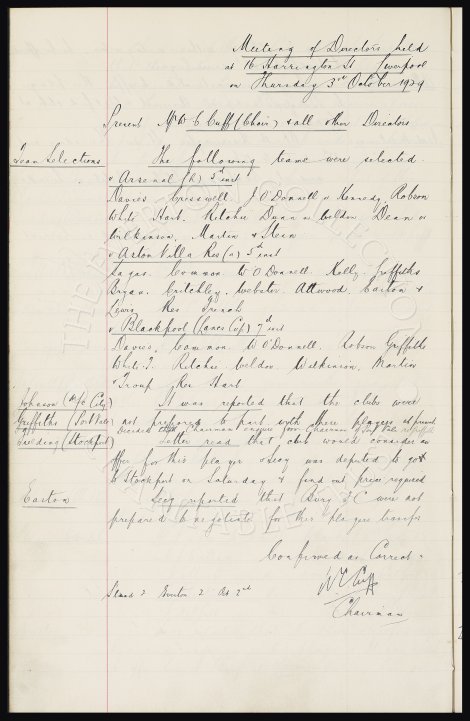 Meeting of Directors held
at 76 Harrington St Liverpool
on Thursday 3rd October 1929
Present Mr W C Cuff (Chair) & all other Directors
Team Selections
The following teams were selected
v Arsenal (h) 5th inst
Davies Cresswell J O'Donnell Kennedy Robson
White Hart Ritchie Dunn Weldon Dean
Wilkinson Martin & Stein
v Aston Villa Res (a) 5th inst
Common W O'Donnell Kelly Griffiths
Bryan Critchley Webster Attwood Easton &
Lewis Res French
v Blackpool (Lancs Cup) 7th inst
Davies Common W O'Donnell Robson Griffiths
White T Ritchie Weldon Wilkinson Martin
Troup Res Hart
Johnson (M/c City)
Griffiths (Port Vale)
It was reported that the clubs were
not prepared to part with these players at present
Decided that Chairman enquire from Chairman of Port Vale
(Stockport)
Letter read that club would consider an
offer for this player & Secy was deputed to go
to Stockport on Saturday & find out price required
Easton
Secy reported that Bury F C were not
prepared to negotiate for this players transfer
Confirmed as Correct
W C Cuff
Chairman
Stand 2 Everton 2 Oct 2nd
THE EVERTON COLLECTION
CHARITABLE TRUST